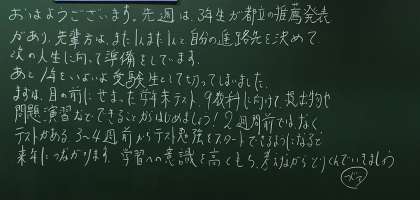 おはようございます。先週は、3年生が都立の推薦発表
があり、先輩方は、また1人また1人と自分の進路先を決めて
次の人生に向って準備をしています。
あと1年をいよいよ受験生として切ってしまいました。
まずは、目の前にせまった学年末テスト、9教科に向けて提出物や
問題演習などできることからはじめましょう!2週間前ではなく
テストがある3～4週前からテスト勉強をスタートできるようになると
来年につながります。学習への意識を高くもち、考えながらとりくんでいきましょう